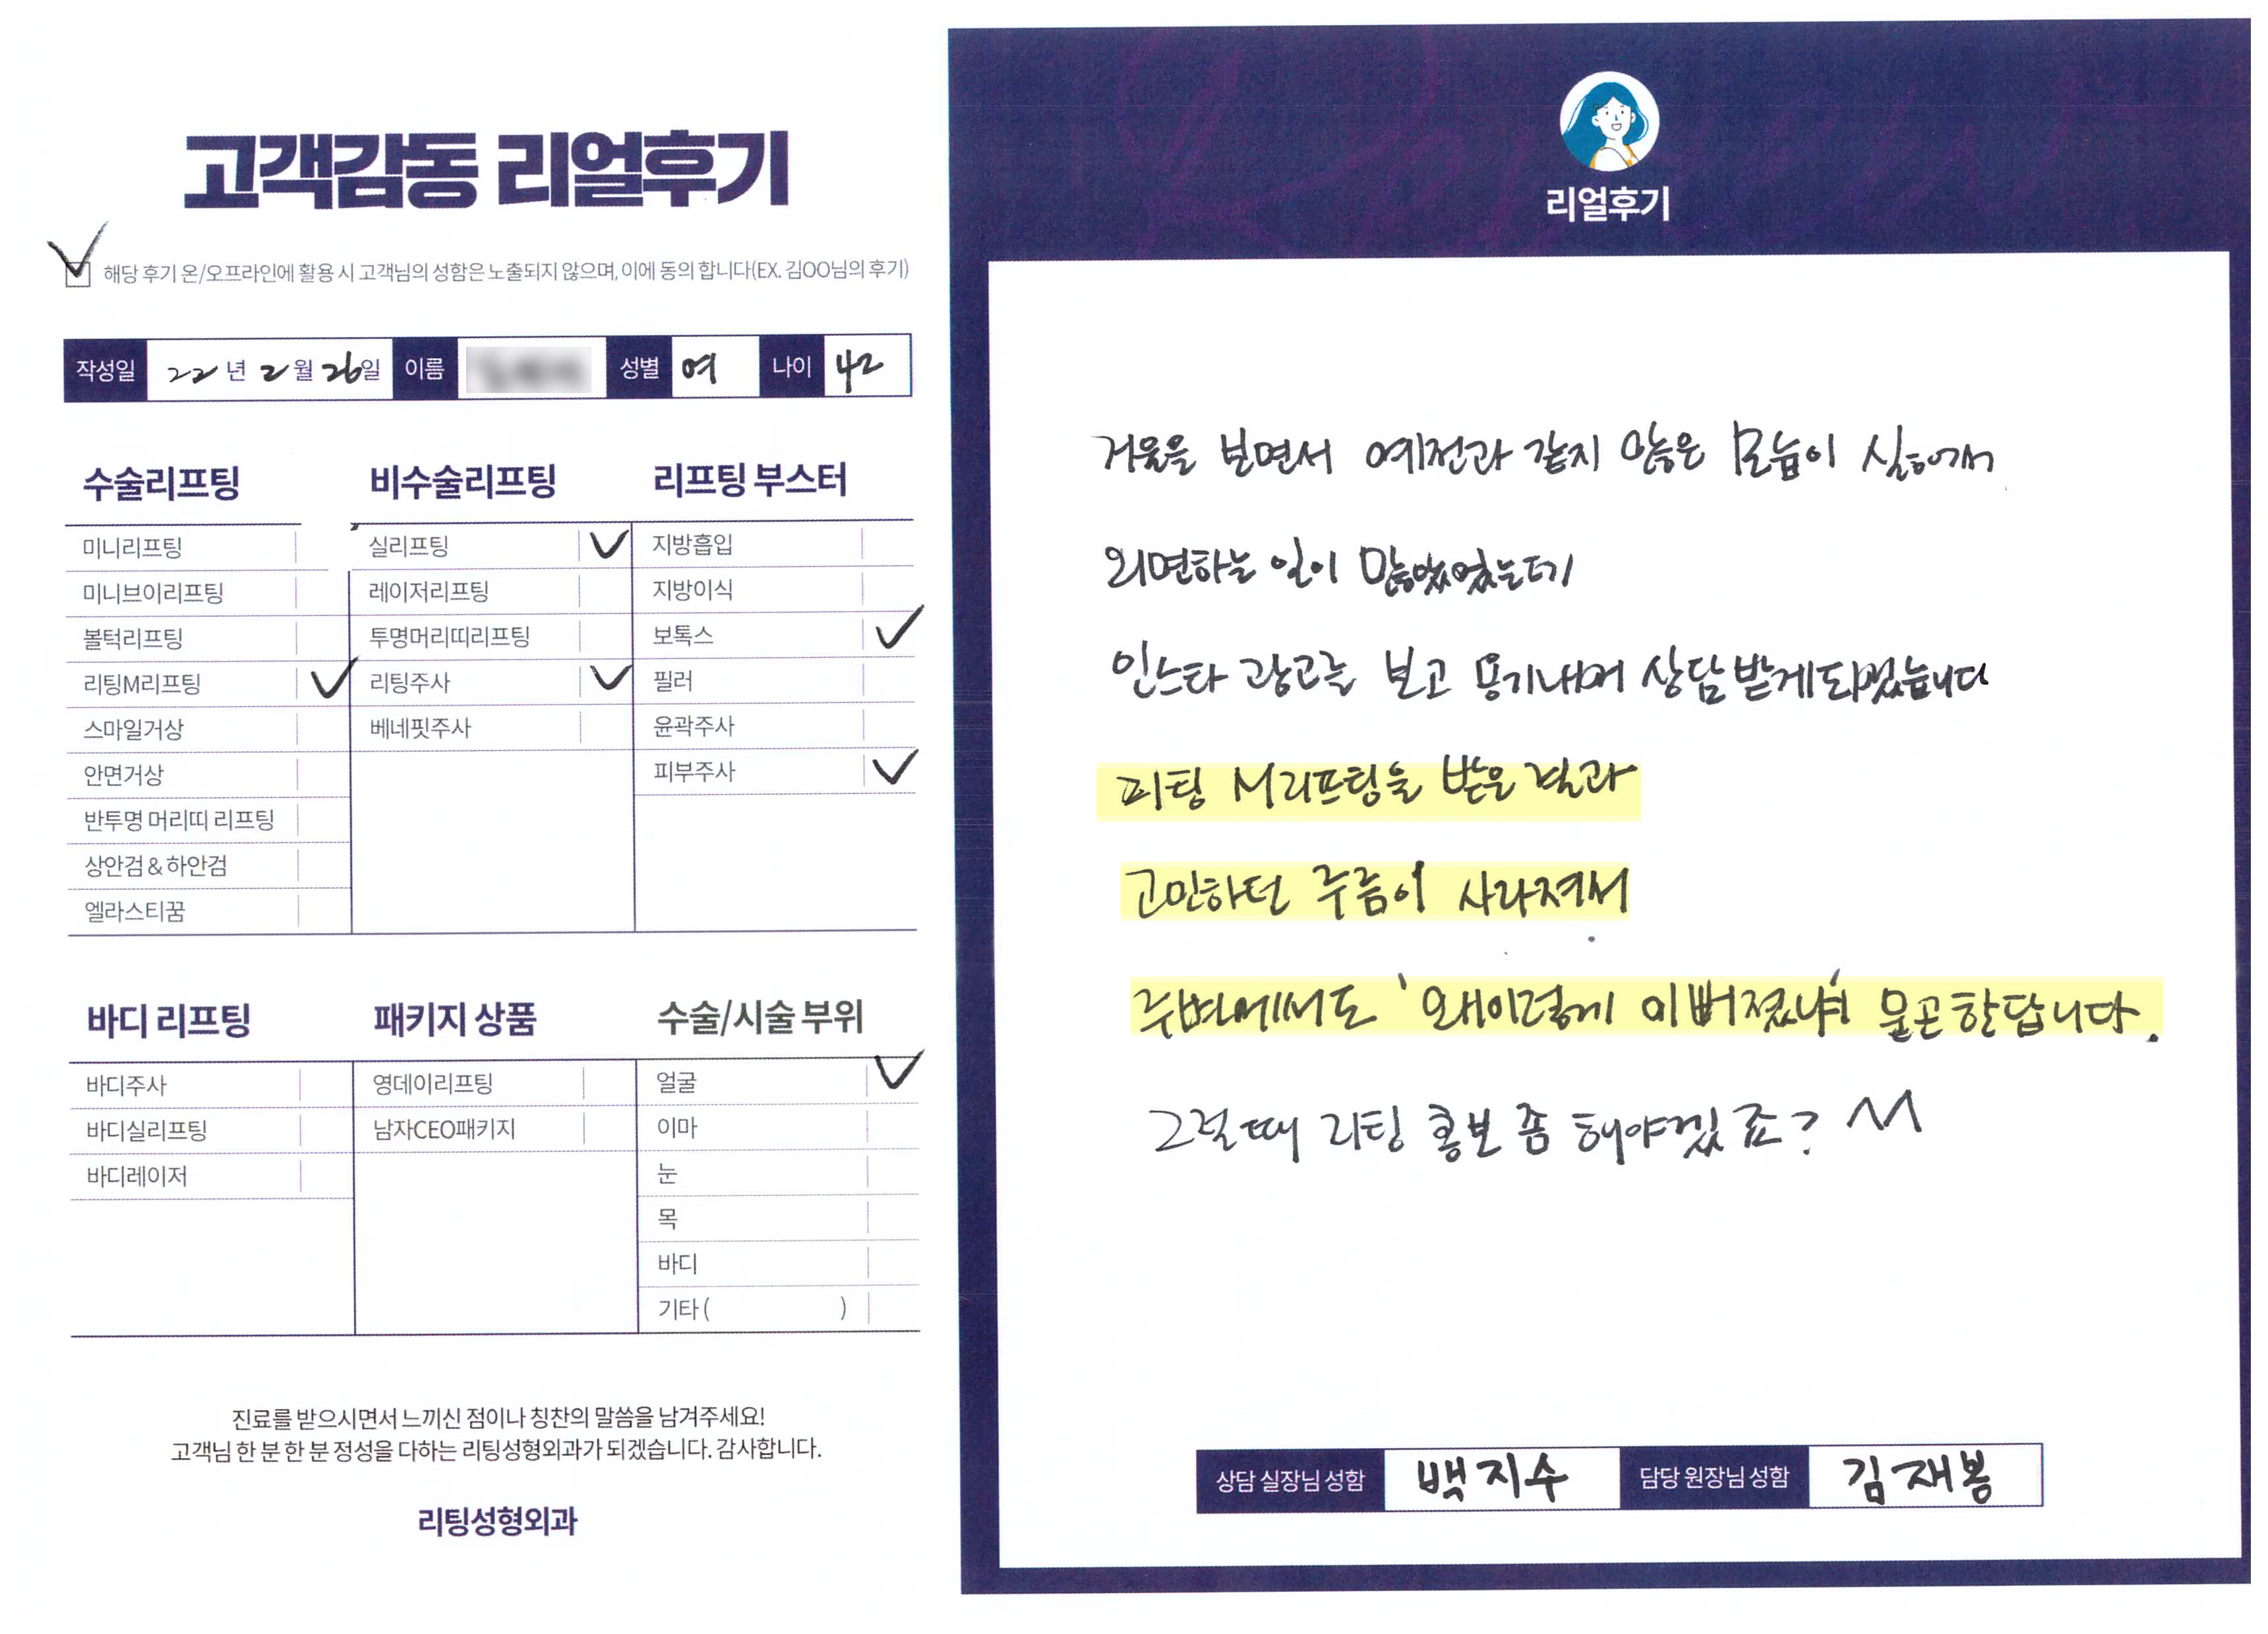 고객감동 리얼후기
해당 후기 온/오프라인에 활용 시 고객님의 성함은 노출되지 않으며, 이에 동의 합니다(EX. 김OO님의 후기)
작성일 22년 2월 26일 이름 성별 여 나이 42
수술리프팅
미니리프팅
미니브이리프팅
볼턱리프팅
리팅M리프팅
스마일거상
안면거상
반투명 머리띠 리프팅
상안검&하안검
엘라스티꿈
비수술리프팅
실리프팅
레이저리프팅
투명머리띠리프팅
리팅주사
베네핏주사
리프팅 부스터
지방흡입
지방이식
보톡스
필러
윤곽주사
피부주사
바디 리프팅
바디주사
바디실리프팅
바디레이저
패키지 상품
영데이리프팅
남자CEO패키지
수술/시술 부위
얼굴
이마
눈
목
바디
기타 ( )
진료를 받으시면서 느끼신 점이나 칭찬의 말씀을 남겨주세요!
고객님 한 분 한 분 정성을 다하는 리팅성형외과가 되겠습니다. 감사합니다.
리팅성형외과
리얼후기
거울을 보면서 예전과 같지 않은 모습이 싫어서
외면하는 일이 많았었는데
인스타 광고를 보고 용기내어 상담받게되었습니다
리팅 M리프팅을 받은 결과
고민하던 주름이 사라져서
주변에서도 '왜이렇게 이뻐졌냐' 물곤한답니다.
그럴때 리팅 홍보 좀 해야겠죠? ^^
상담 실장님 성함 백지수 담당 원장님 성함 김재봉